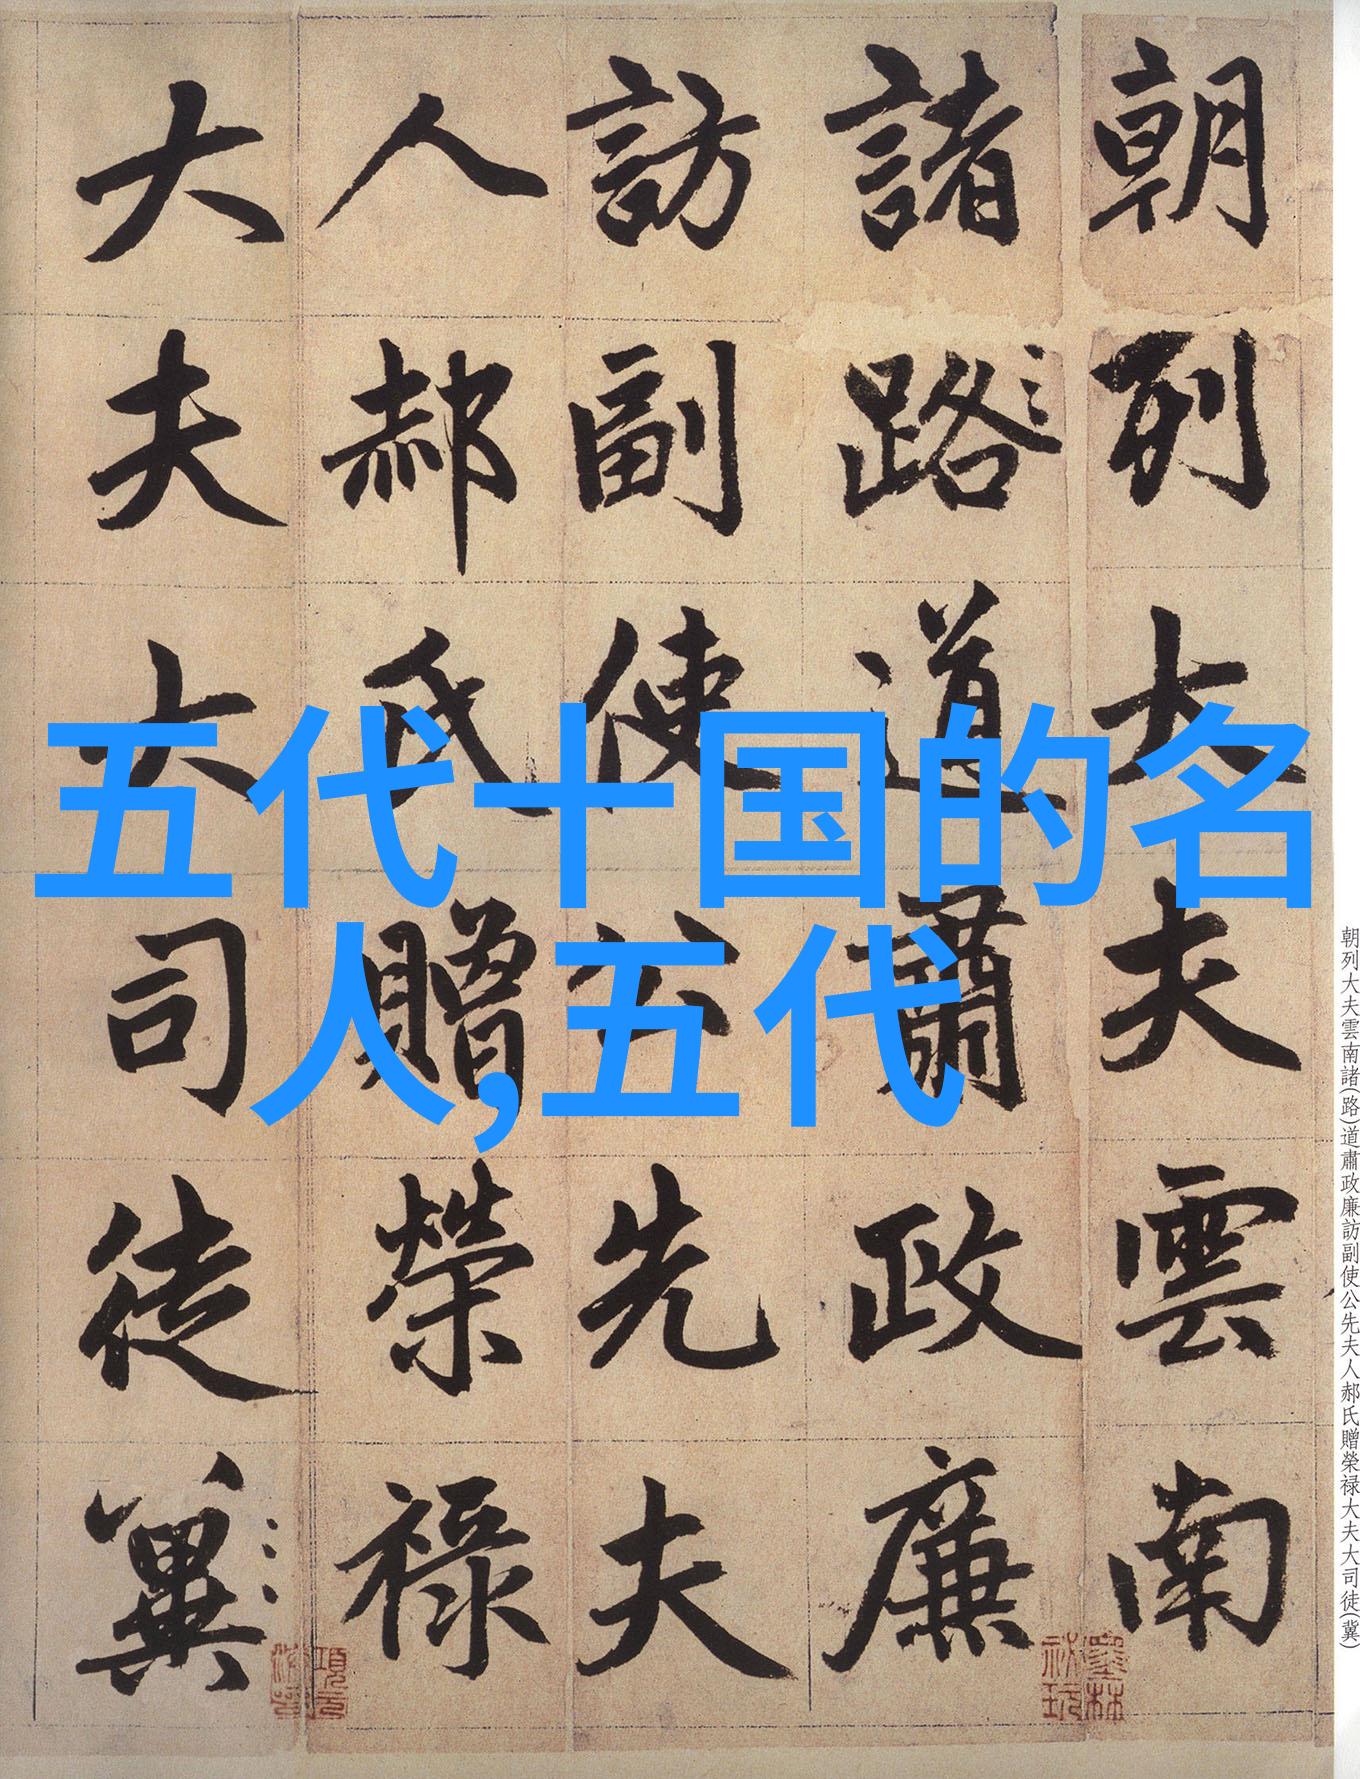 朝列大夫雲南
諸路道肅政廉
訪副使公先夫
人郝氏贈榮祿
大夫大司徒冀
五代十国的名
人,五代
朝列大夫雲南諸(路)道肅政廉訪副使公先夫人郝氏贈榮禄大夫大司徒(冀)